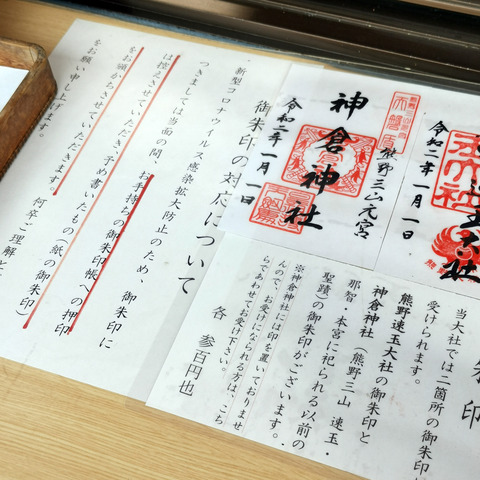 御朱印の対応について
新型コロナウイルス感染拡大防止のため、御朱印に
つきましては当面の間、お手持ちの御朱印帳への押印
は控えさせていただき、予め書いたもの(紙の御朱印)
をお頒かちさせていただきます。何卒ご理解と
をお願い申し上げます。
熊野三山元宮
神倉神社
令和二年一月一日
令和二年一月一日
朱印
当大社では二箇所の御朱印
受けられます。
熊野速玉大社の御朱印と
神倉神社(熊野三山 速玉・
那智・本宮に祀られる以前の
聖蹟)の御朱印がございます。
※神倉神社には印を置いておりませ
んので、お受けになられる方は、こち
らであわせてお受け下さい。
各 参百円也